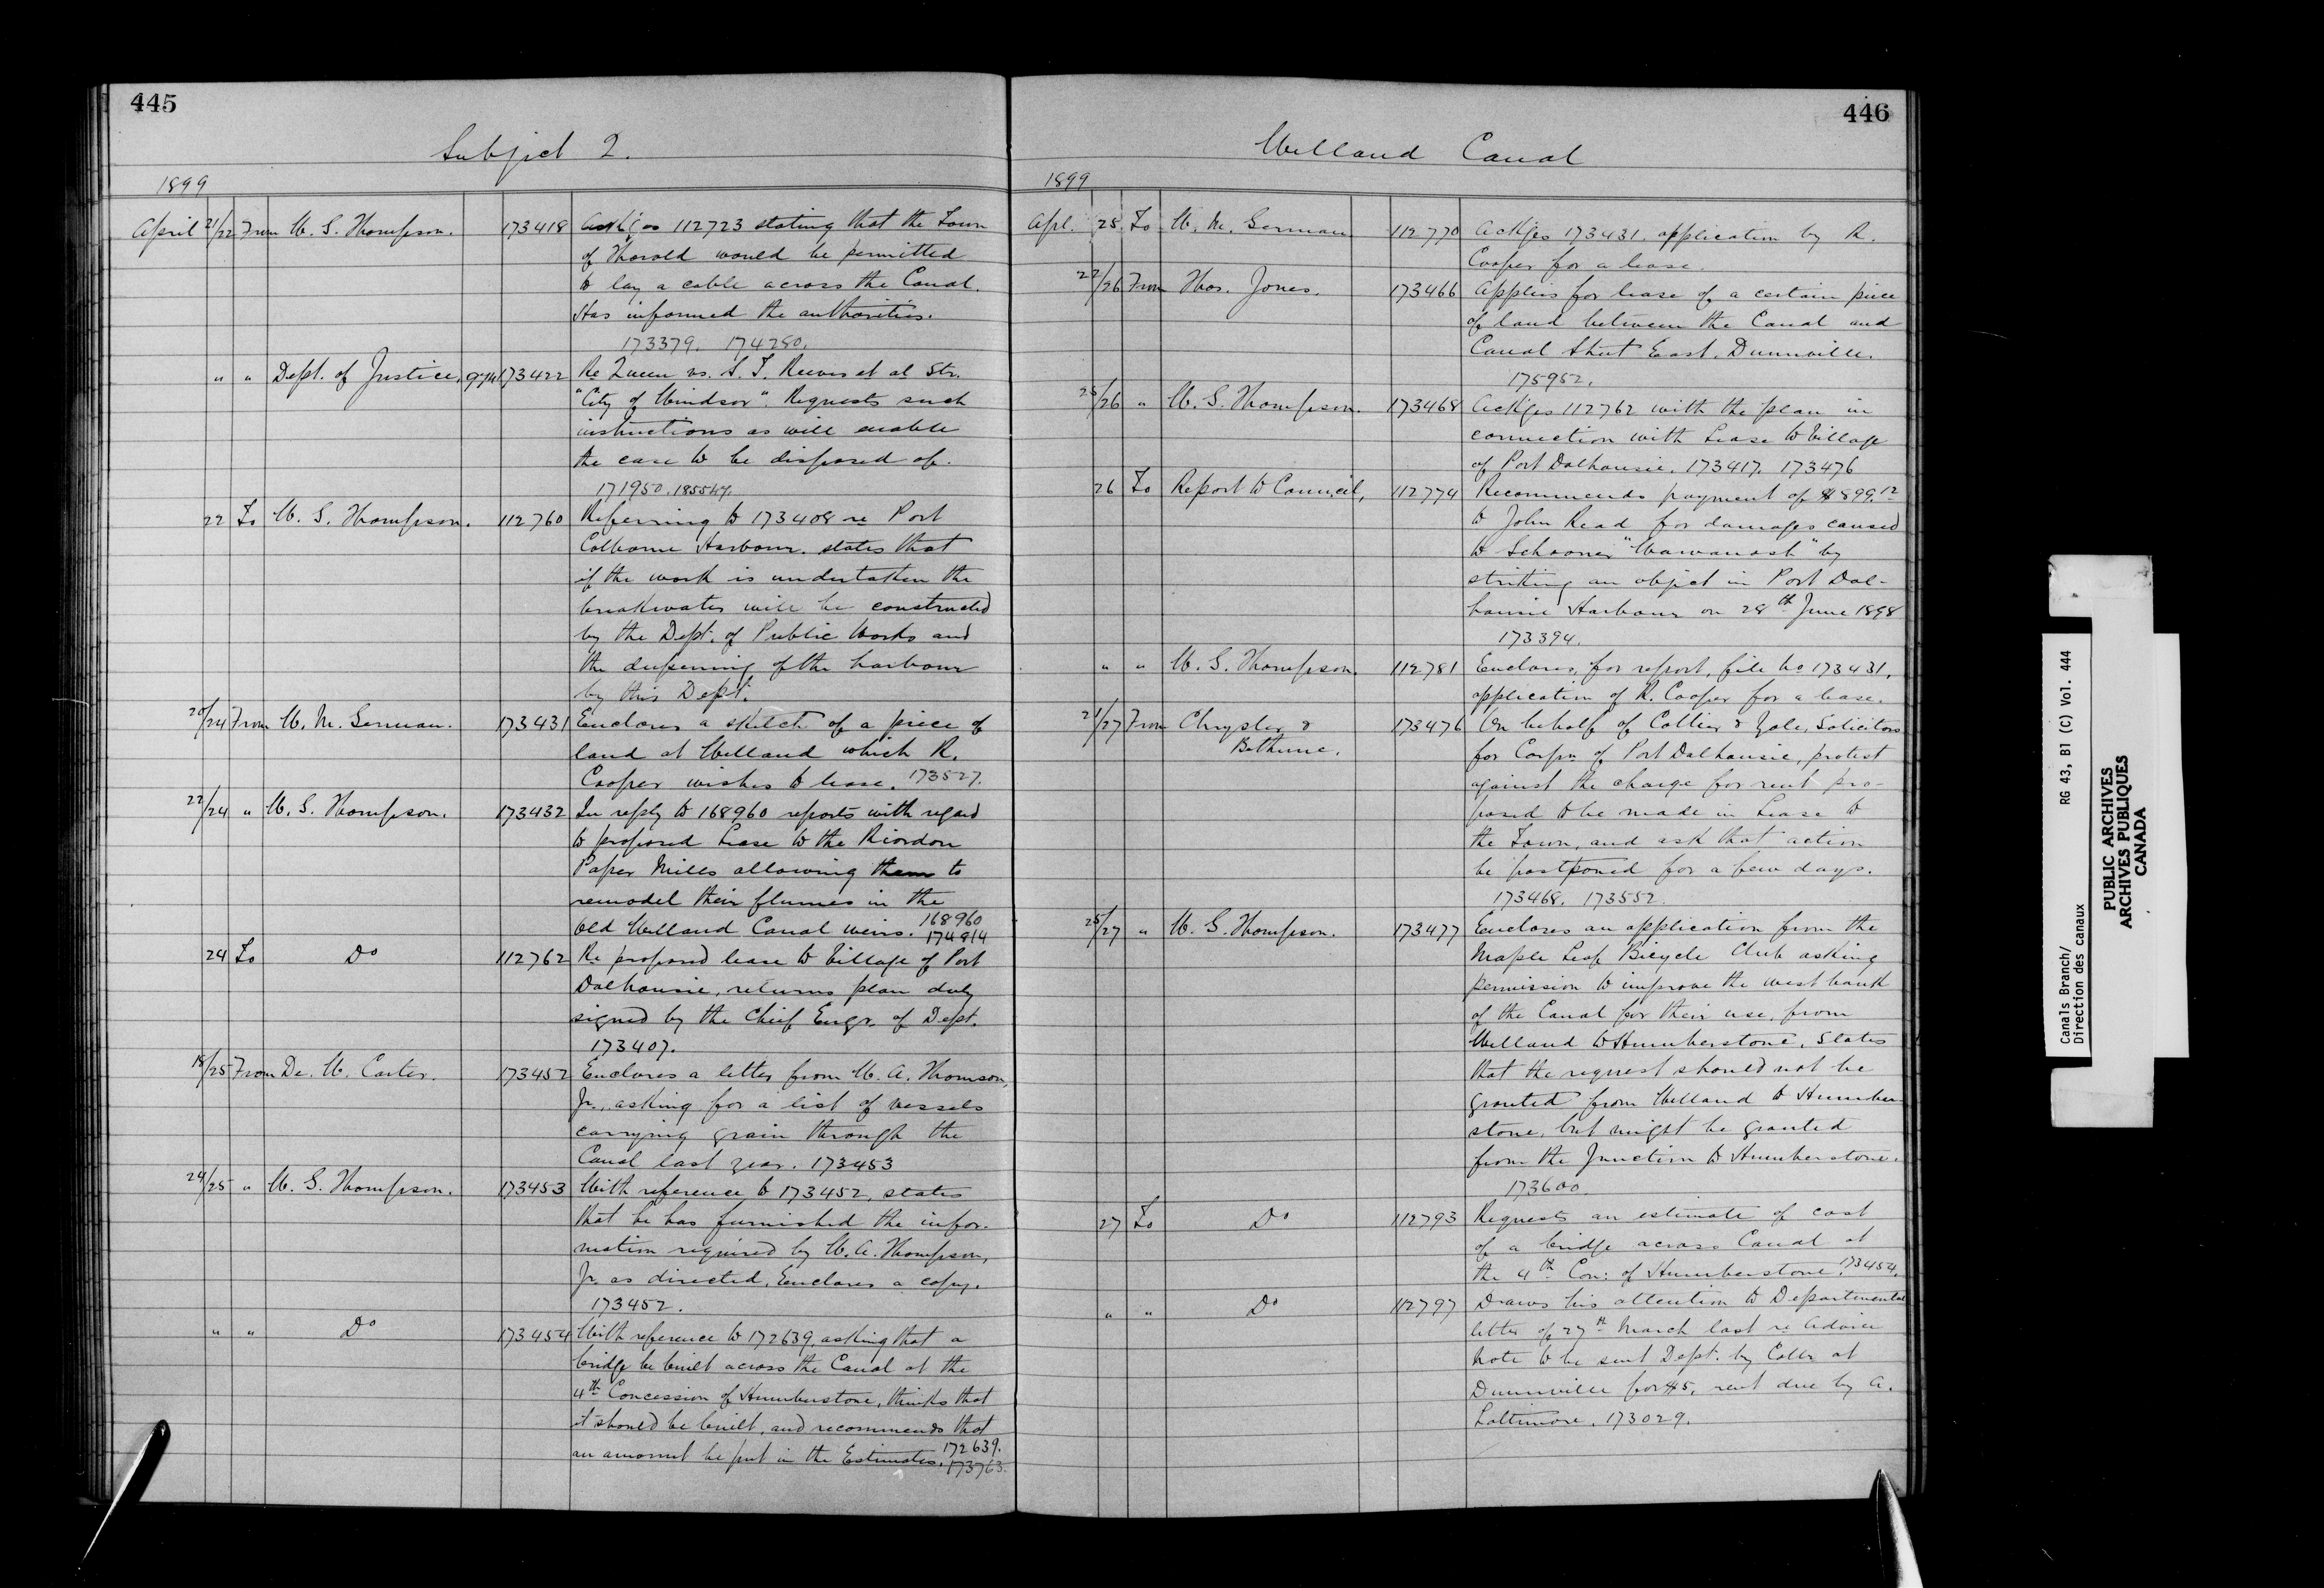 445
Subject 2.
1899
April 21/22 From W. G. Thompson. 173418 Ackges 112723 stating that the Town
of Thorold would be permitted
to lay a cable across the Canal.
Has informed the authorities.
173379. 174280.
" " Dept. of Justice, 173422 Re Queen vs. S. T. Reeves et al Str.
"City of Windsor". Requests such
instructions as will enable
the case to be disposed of.
171950. 185547.
22 To W. G. Thompson. 112760 Referring to 173408 re Port
Colborne Harbour. states that
if the work is undertaken the
breakwater will be constructed
by the Dept. of Public Works and
the deepening of the harbour
by this Dept.
20/24 From W. M. German. 173431 Encloses a sketch of a piece of
land at Welland which R.
Cooper wishes to lease. 173527.
22/24 " W. G. Thompson. 173432 In reply to 168960 reports with regard
to proposed Lease to the Riordon
Paper Mills allowing them to
remodel their flumes in the
Old Welland Canal weirs. 168960
174814
24 To Do 112762 Re proposed lease to Village of Port
Dalhousie, returns plan duly
signed by the Chief Engr. of Dept.
173407.
18/25 From De. W. Carter. 173452 Encloses a letter from W. A. Thomson,
Jr., asking for a list of vessels
carrying grain through the
Canal last year. 173453
24/25 " W. G. Thompson. 173453 With reference to 173452, states
that he has furnished the infor-
mation required by W. A. Thompson,
Jr. as directed, Encloses a copy.
173452.
" " Do 173454 With reference to 172639, asking that a
bridge be built across the Canal at the
4th Concession of Humberstone, thinks that
it should be built, and recommends that
an amount be put in the Estimates. 172639.
173763.
446
Welland Canal
1899
Apl. 25 To W. M. German 112770 Ackges 173431. application by R.
Cooper for a lease.
22/26 From Thos. Jones. 173466 Applies for lease of a certain piece
of land between the Canal and
Canal Street East. Dunnville.
175952.
25/26 " W. G. Thompson. 173468 Ackges 112762 with the plan in
connection with Lease to Village
of Port Dalhousie. 173417. 173476
26 To Report to Council, 112774 Recommends payment of $899.12
to John Read for damages caused
to Schooner "Wawanosh" by
striking an object in Port Dal-
housie Harbour on 28th June 1898
173394.
" " W. G. Thompson. 112781 Encloses, for report, file No 173431,
application of R. Cooper for a lease.
21/27 From Chrysler & 173476 On behalf of Collier & Yale, Solicitors
Bethune. for Corpn of Port Dalhousie, protest
against the charge for rent pro-
posed to be made in Lease to
the Town, and ask that action
be postponed for a few days.
173468. 173552.
25/27 " W. G. Thompson. 173477 Encloses an application from the
Maple Leaf Bicycle Club asking
permission to improve the west bank
of the Canal for their use, from
Welland to Humberstone, States
that the request should not be
granted from Welland to Humber-
stone, but might be granted
from the Junction to Humberstone.
173600.
27 To Do 112793 Requests an estimate of cost
of a bridge across Canal at
the 4th Con: of Humberstone. 173454.
" " Do 112797 Draws his attention to Departmental
letter of 27th March last re Advice
Note to be sent Dept. by Collr at
Dunnville for $5, rent due by A.
Lattimore. 173029.
Canals Branch/ RG 43, B1 (C) Vol. 444
Direction des canaux
PUBLIC ARCHIVES
ARCHIVES PUBLIQUES
CANADA